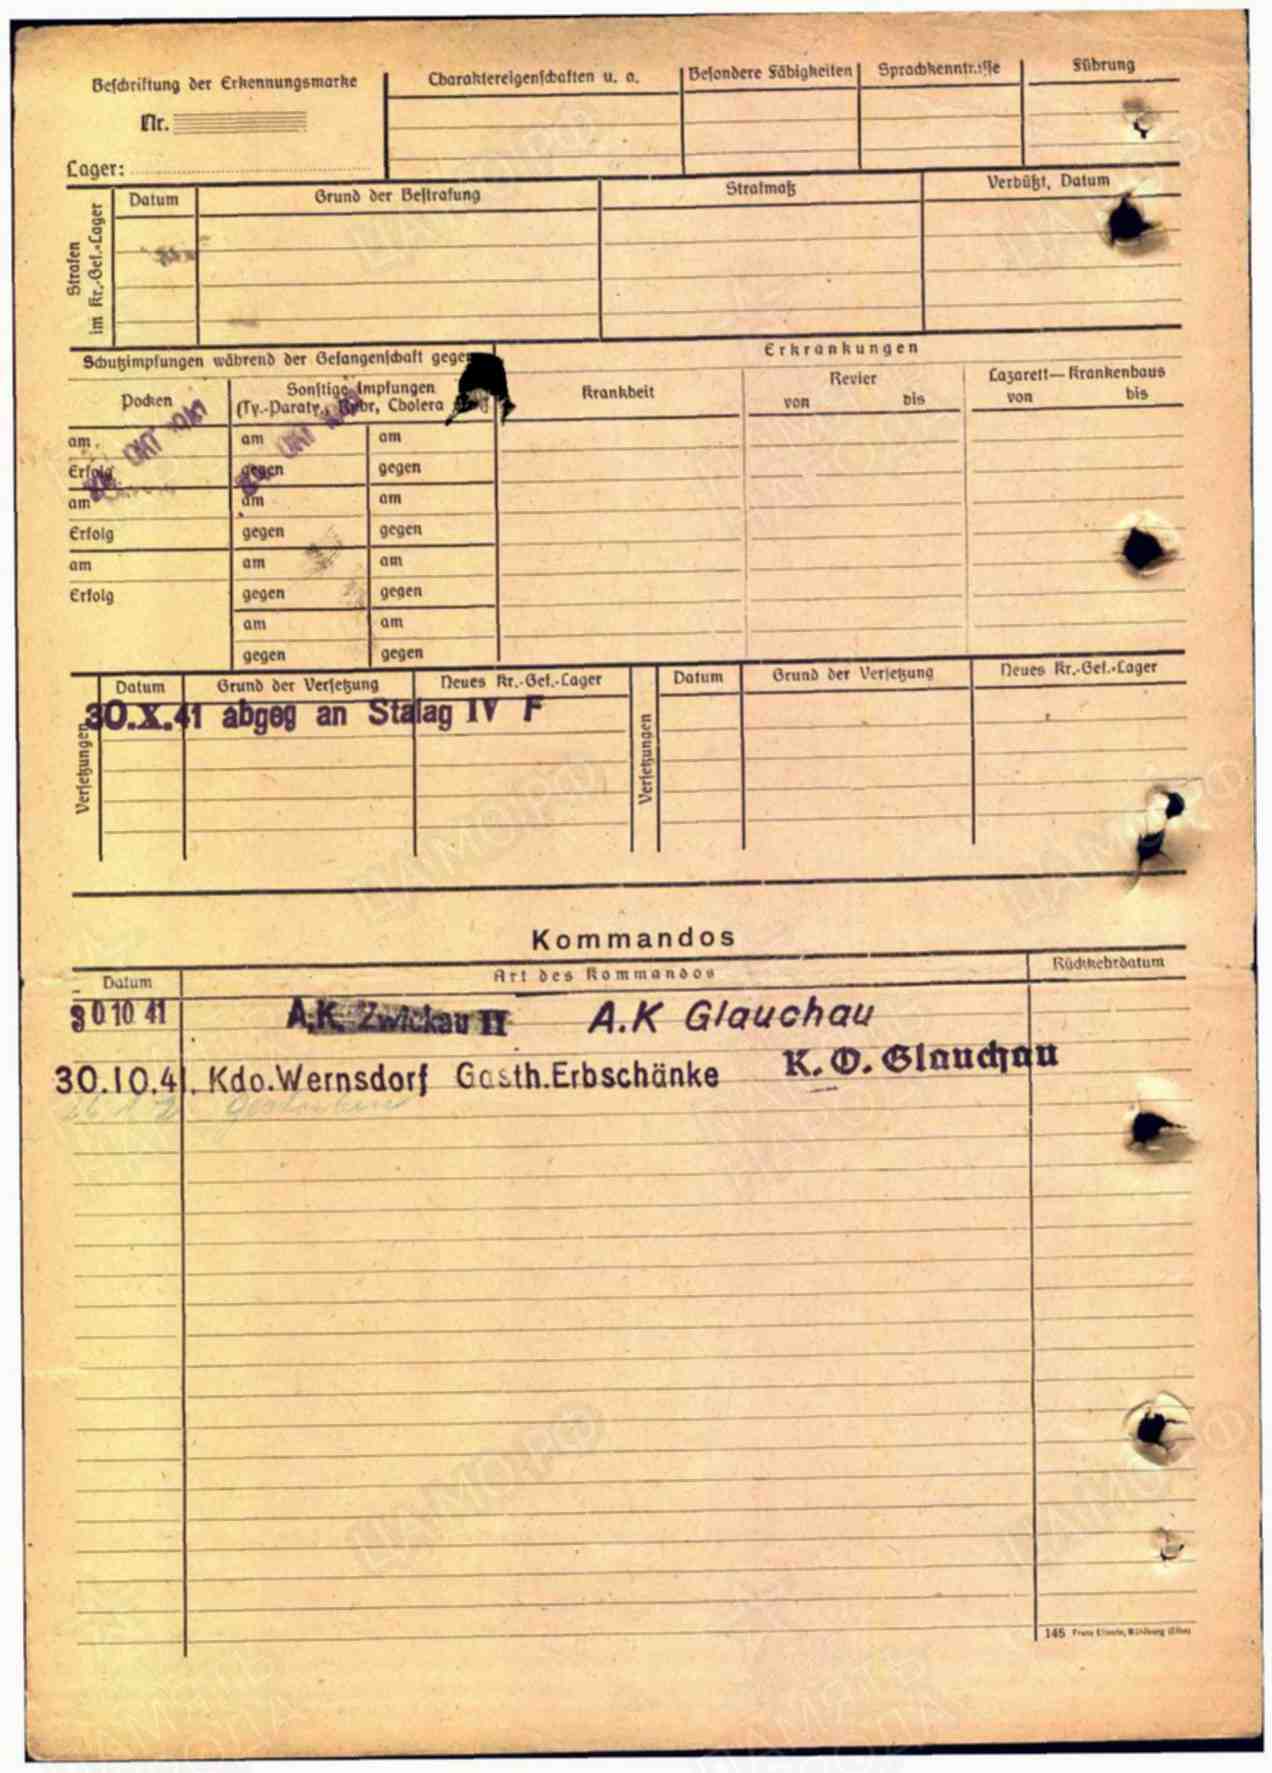 Beschriftung der Erkennungsmarke
Nr.
Lager:
Charaktereigenschaften u. a.
Besondere Fähigkeiten
Sprachkenntnisse
Führung
Strafen im Kr.-Gef.-Lager
Datum
Grund der Bestrafung
Strafmaß
Verbüßt, Datum
Schutzimpfungen während der Gefangenschaft gegen
Erkrankungen
Pocken
Sonstige Impfungen
(Ty.-Paraty., Ruhr, Cholera
Krankheit
Revier
von bis
Lazarett—Krankenhaus
von bis
am am am
OKT 1941 OKT
Erfolg gegen gegen
am am am
Erfolg gegen gegen
am am am
Erfolg gegen gegen
am am
gegen gegen
Versetzungen
Datum Grund der Versetzung Neues Kr.-Gef.-Lager
30.X.41 abgeg an Stalag IV F
Versetzungen
Datum Grund der Versetzung Neues Kr.-Gef.-Lager
Kommandos
Datum Art des Kommandos Rückkehrdatum
30 10 41 A.K. Zwickau II A.K Glauchau
30.10.41. Kdo.Wernsdorf Gasth.Erbschänke K. O. Glauchau
145 Mühlberg (Elbe)
ЦАМО.РФ